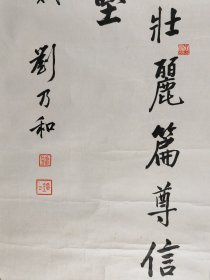 壯麗篇尊信
堅
劉乃和